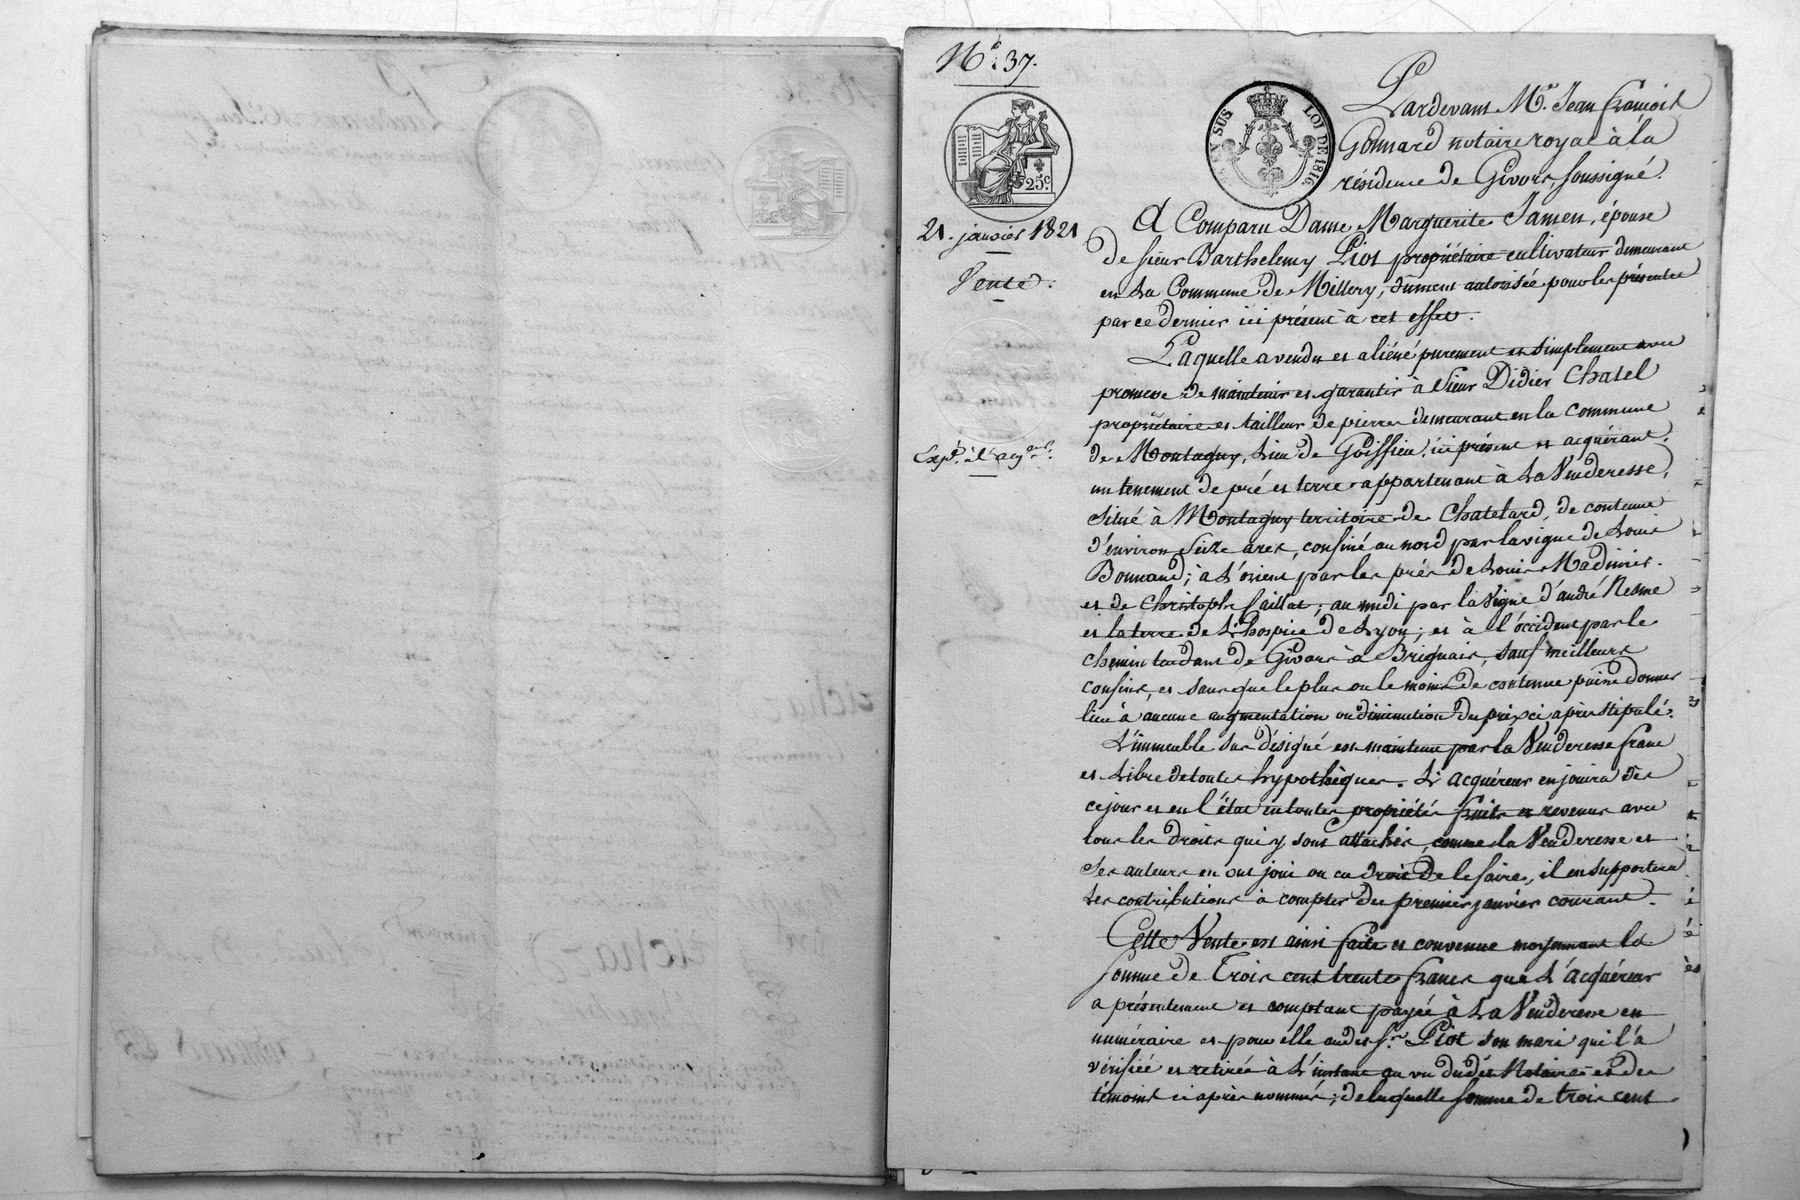 N.° 37.
25c.
EN SUS LOI DE 1816.
21. janvier 1821
Vente.
Exp.on à l'acq.
Pardevant M.e Jean François
Gonnard notaire royal à la
résidence de Givors, soussigné.
A Comparu Dame Marguerite Jamen, épouse
de sieur Barthelemy Piot propriétaire cultivateur demeurant
en la Commune de Millery, dument autorisée pour les présentes
par ce dernier ici présent à cet effet.
Laquelle a vendu et aliéné purement et simplement avec
promesse de maintenir et garantir à sieur Didier Chatel
propriétaire et tailleur de pierres demeurant en la commune
de Montagny, lieu de Goiffieu, ici présent et acquérant,
un tenement de pré et terre appartenant à la Venderesse,
situé à Montagny territoire de Chatelard, de contenue
d'environ seize ares, confiné au nord par la vigne de Louis
Bonnand; à l'orient par les prés de Louis Madinier
et de Christophe Saillat; au midi par la vigne d'andré Nesme
et la terre de l'hospice de Lyon; et à l'occident par le
chemin tendant de Givors à Brignais, sauf meilleurs
confins, et sans que le plus ou le moins de contenue puisse donner
lieu à aucune augmentation ou diminution du prix ci après stipulé.
L'immeuble sus désigné est maintenu par la Venderesse franc
et libre de toutes hypothèques. L'acquéreur en jouira dès
ce jour et en l'état en toutes propriétés fruits et revenus avec
tous les droits qui y sont attachés, comme la Venderesse et
ses auteurs en ont joui ou eu droit de le faire, il en supportera
les contributions à compter du premier janvier courant.
Cette Vente est ainsi faite et convenue moyennant la
somme de trois cent trente francs que l'acquéreur
a présentement et comptant payée à la Venderesse en
numéraire et pour elle audit s.r Piot son mari qui l'a
vérifiée et retirée à l'instant au vu dudit Notaire et des
témoins ci après nommés; de laquelle somme de trois cent